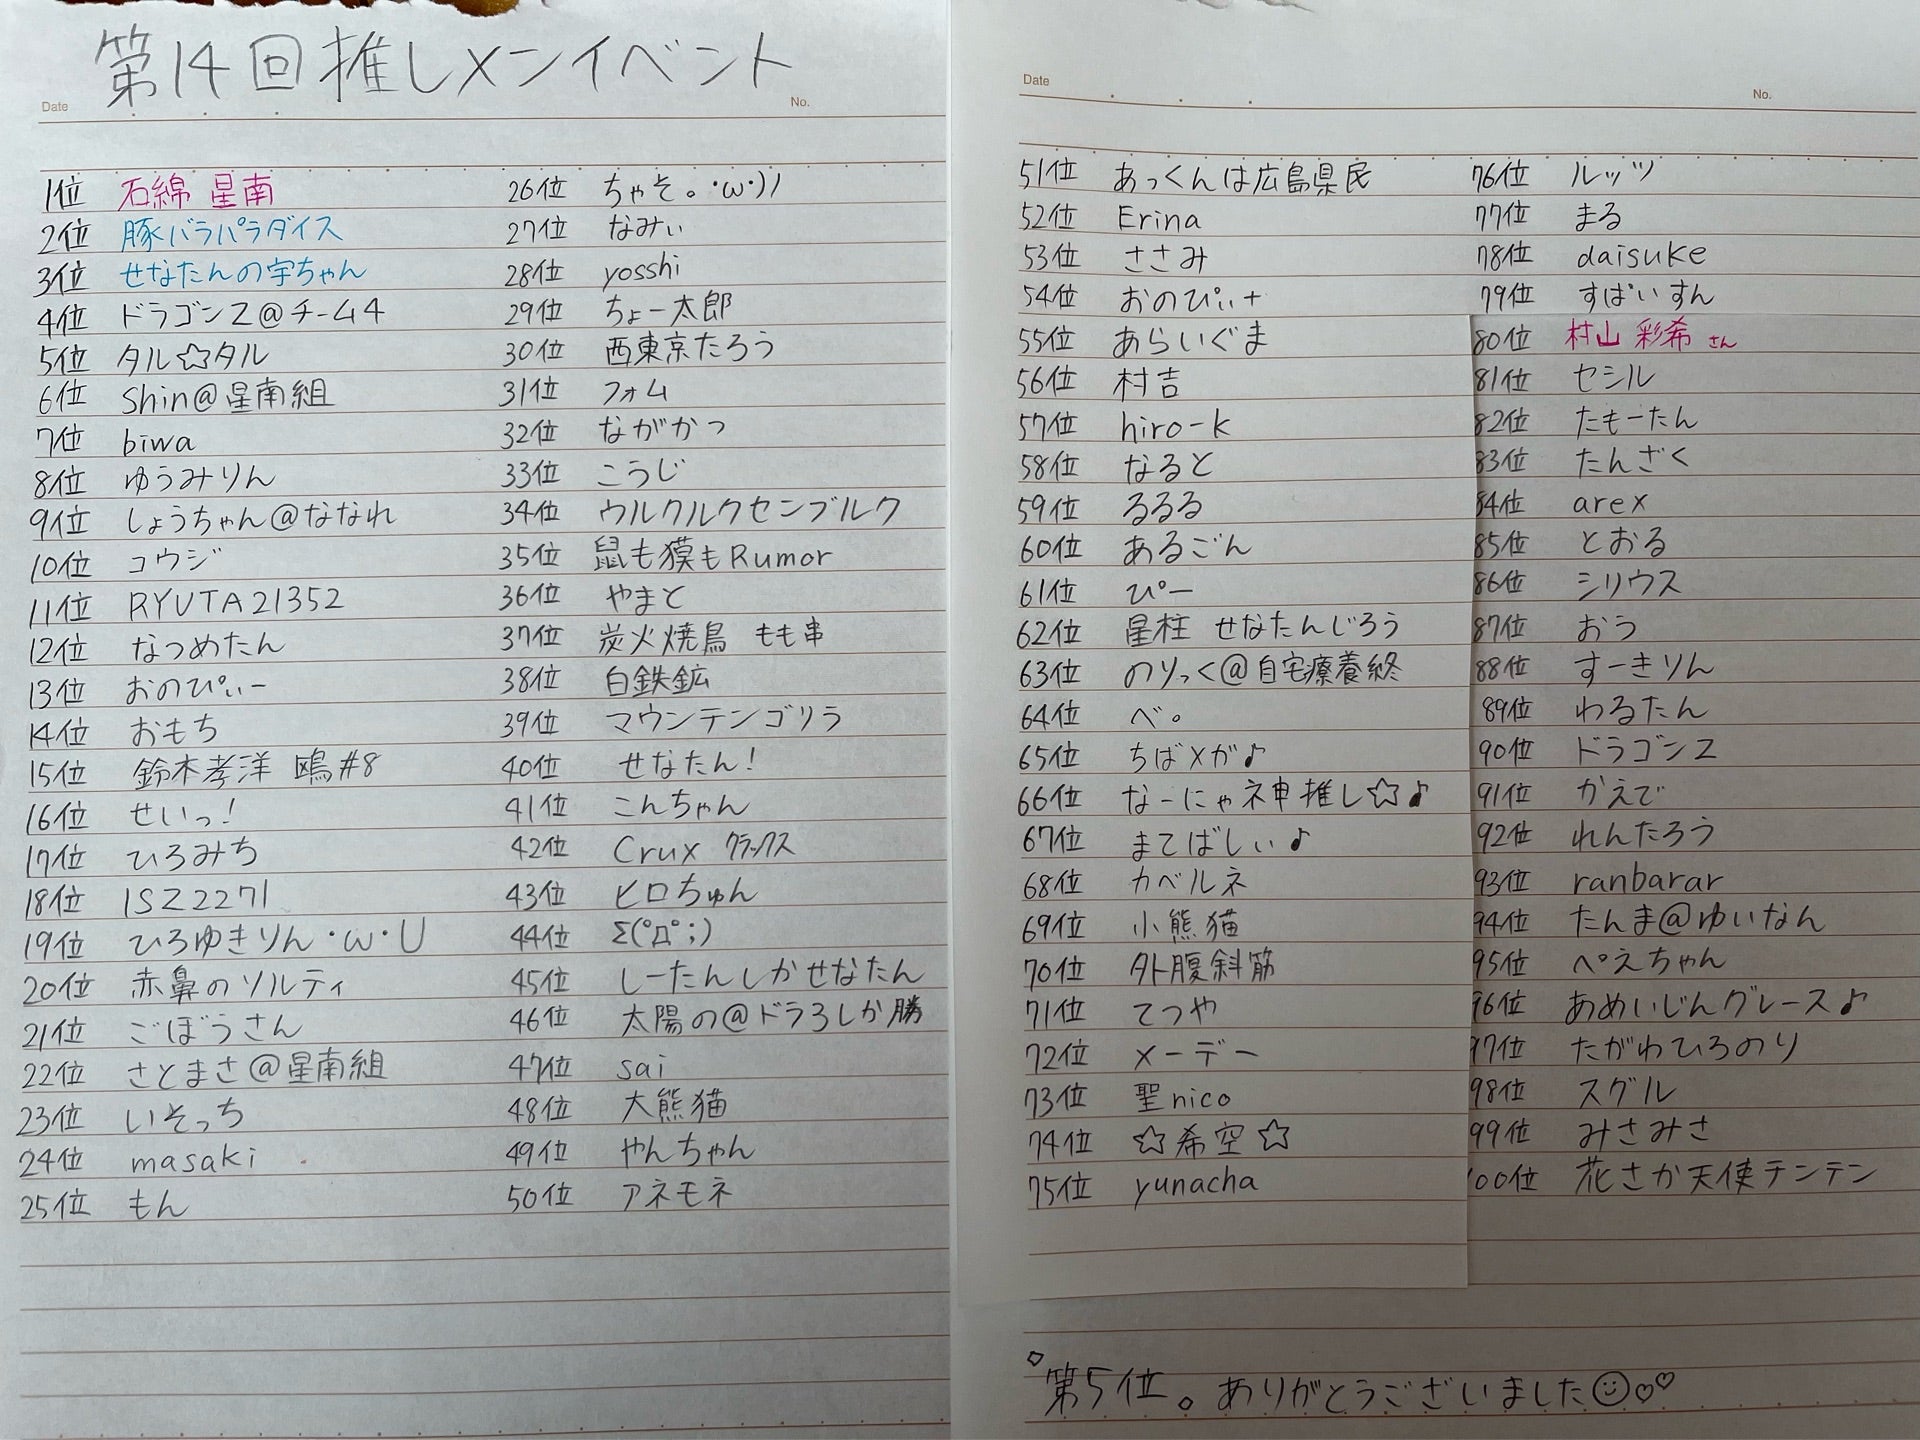 第14回推しメンイベント
Date
No.
1位 石綿 星南
2位 豚バラパラダイス
3位 せなたんの宇ちゃん
4位 ドラゴンZ@チーム4
5位 タル☆タル
6位 Shin@星南組
7位 biwa
8位 ゆうみりん
9位 しょうちゃん@ななれ
10位 コウジ
11位 RYUTA21352
12位 なつめたん
13位 おのぴぃー
14位 おもち
15位 鈴木孝洋 鴎#8
16位 せいっ!
17位 ひろみち
18位 ISZ2271
19位 ひろゆきりん・ω・U
20位 赤鼻のソルティ
21位 ごぼうさん
22位 さとまさ@星南組
23位 いそっち
24位 masaki
25位 もん
26位 ちゃそ。・ω・)ﾉ
27位 なみぃ
28位 yosshi
29位 ちょー太郎
30位 西東京たろう
31位 フォム
32位 ながかつ
33位 こうじ
34位 ウルクルクセンブルク
35位 鼠も獏もRumor
36位 やまと
37位 炭火焼鳥 もも串
38位 白鉄鉱
39位 マウンテンゴリラ
40位 せなたん!
41位 こんちゃん
42位 Crux クラックス
43位 ヒロちゅん
44位 Σ(ﾟДﾟ;)
45位 しーたんしかせなたん
46位 太陽の@ドラ3しか勝
47位 sai
48位 大熊猫
49位 やんちゃん
50位 アネモネ
Date
No.
51位 あっくんは広島県民
52位 Erina
53位 ささみ
54位 おのぴぃ+
55位 あらいぐま
56位 村吉
57位 hiro-k
58位 なると
59位 るるる
60位 あるごん
61位 ぴー
62位 星柱 せなたんじろう
63位 のりっく@自宅療養終
64位 べ。
65位 ちばメガ♪
66位 なーにゃネ申推し☆♪
67位 まてばしぃ♪
68位 カベルネ
69位 小熊猫
70位 外腹斜筋
71位 てつや
72位 メーデー
73位 聖nico
74位 ☆希空☆
75位 yunacha
76位 ルッツ
77位 まる
78位 daisuke
79位 すぱいすん
80位 村山 彩希 さん
81位 セシル
82位 たもーたん
83位 たんざく
84位 arex
85位 とおる
86位 シリウス
87位 おう
88位 すーきりん
89位 わるたん
90位 ドラゴンZ
91位 かえで
92位 れんたろう
93位 ranbarar
94位 たんま@ゆいなん
95位 ぺえちゃん
96位 あめいじんグレース♪
97位 たがわひろのり
98位 スグル
99位 みさみさ
100位 花さか天使テンテン
第5位。ありがとうございました☺♡♡